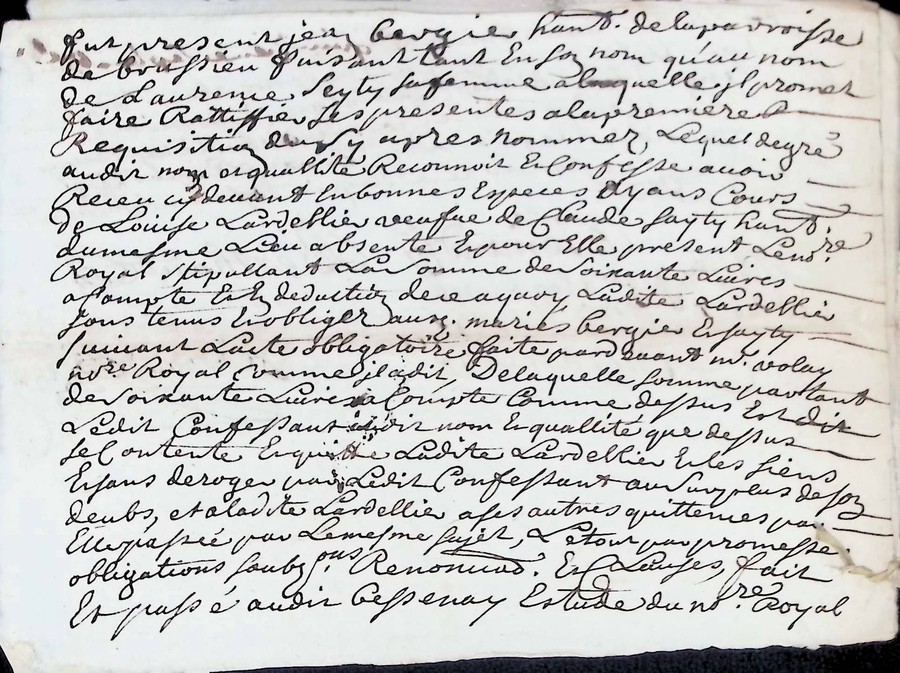 fut present jean bergier hant. de la parroisse
de brussieu faisant tant En son nom qu'au nom
de Laurence Seyty sa femme a laquelle jl promet
faire Rattiffier Les presentes a la premiere
Requisition du Sy apres nommez, Lequel de gré
audit nom et quallité Reconnoit Et Confesse avoir
Receu cy devant En bonnes Especes Ayans Cours
de Louise Lardellier veufue de Claude Seyty hant.
du mesme Lieu absente Et pour Elle present Le no.re
Royal stipullant La somme de soixante Livres
a Compte Et En deduction de ce a quoy Ladite Lardellier
sont tenus Et obligez auxd. mariés bergier Et seyty
suivant Lacte obligatoire faite pardevant m.e volay
no.re Royal Comme jl a dit Delaquelle somme partant
de soixante Livres a Compte Comme dessus Est dit
Ledit Confessant audit nom Et quallité que dessus
se Contente Et quitte Ladite Lardellier Et les siens
Et sans deroger par Ledit Confessant au surplus de son
deubs, et a ladite Lardellier a ses autres quittences par
Elle passée par Le mesme sujet, Le tout par promesse.
obligations soubz.ons Renonciaõ. Et Clauses, fait
Et passé audit bessenay Estude du no.re Royal